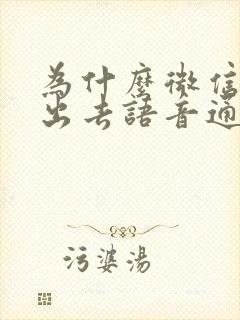 為什麼微信
出去語音通
污婆湯